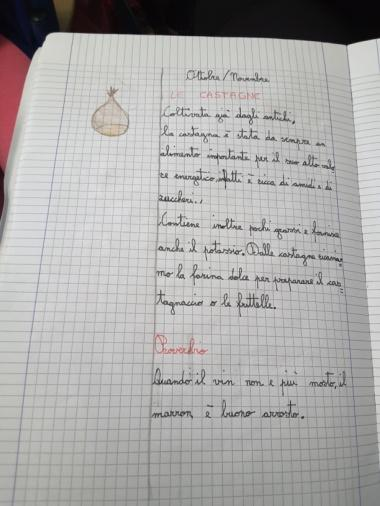 Ottobre/Novembre
LE CASTAGNE
Coltivata già dagli antichi,
la castagna è stata da sempre un
alimento importante per il suo alto valo
re energetico, infatti è ricca di amidi e di
zuccheri.
Contiene inoltre pochi grassi e fornisce
anche il potassio. Dalle castagne ricavia=
mo la farina dolce per preparare il cas=
tagnaccio o le frittelle.
Proverbio
Quando il vin non è più mosto, il
marron è buono arrosto.